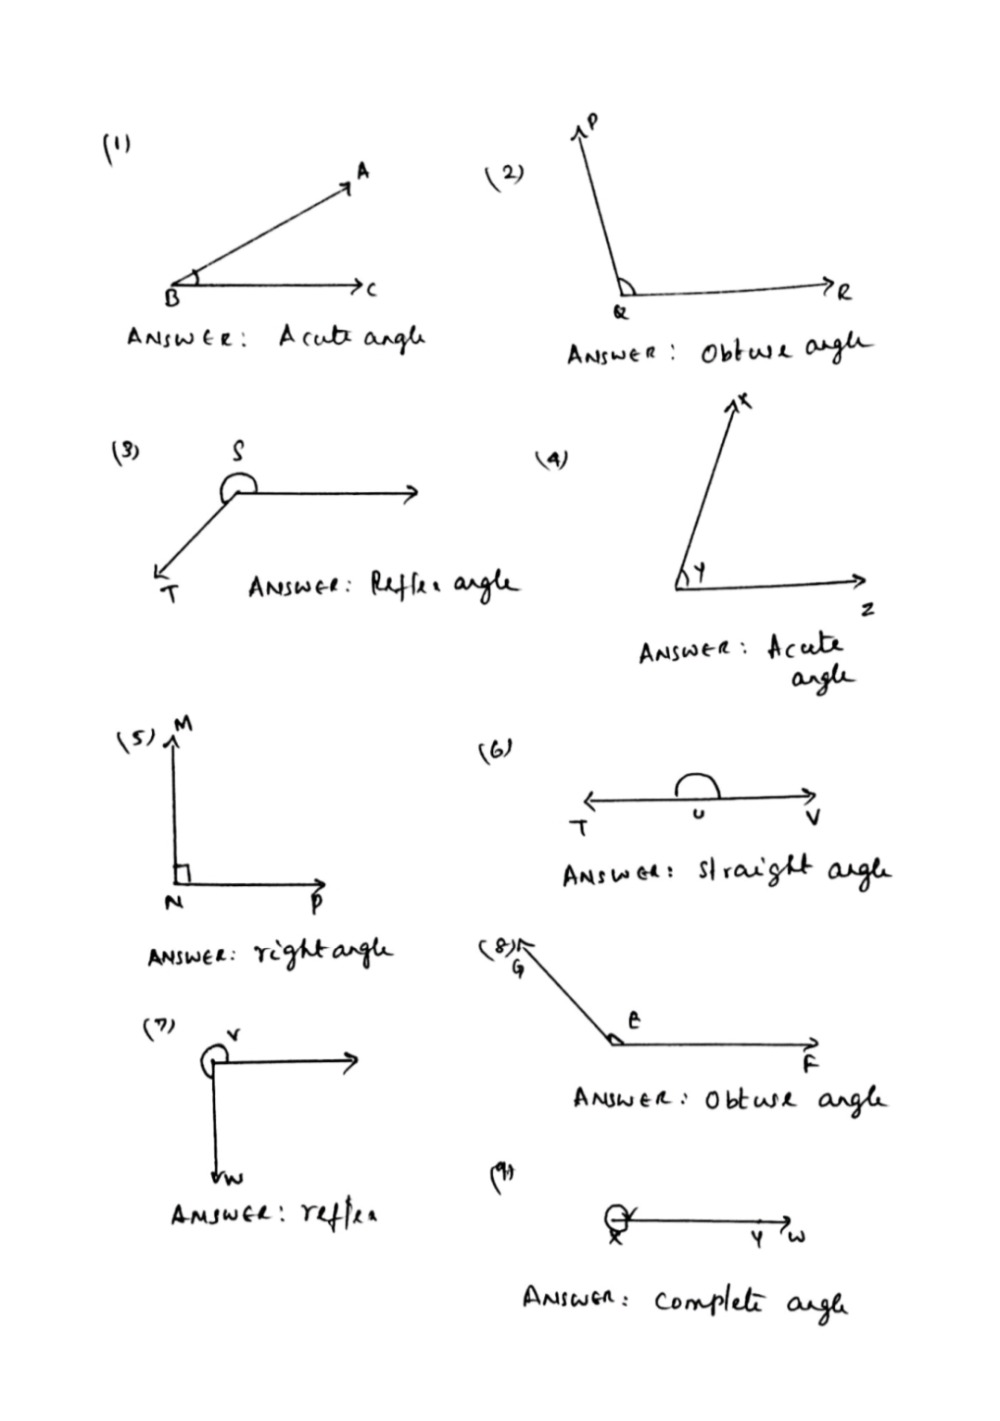 (1)
A
B
C
ANSWER: Acute angle
(2)
P
Q
R
ANSWER: Obtuse angle
(3)
S
T
ANSWER: Reflex angle
(4)
X
Y
Z
ANSWER: Acute
angle
(5)
M
N
P
ANSWER: right angle
(6)
T
U
V
ANSWER: straight angle
(7)
V
W
ANSWER: reflex
(8)
G
E
F
ANSWER: Obtuse angle
(9)
X
Y
W
ANSWER: complete angle